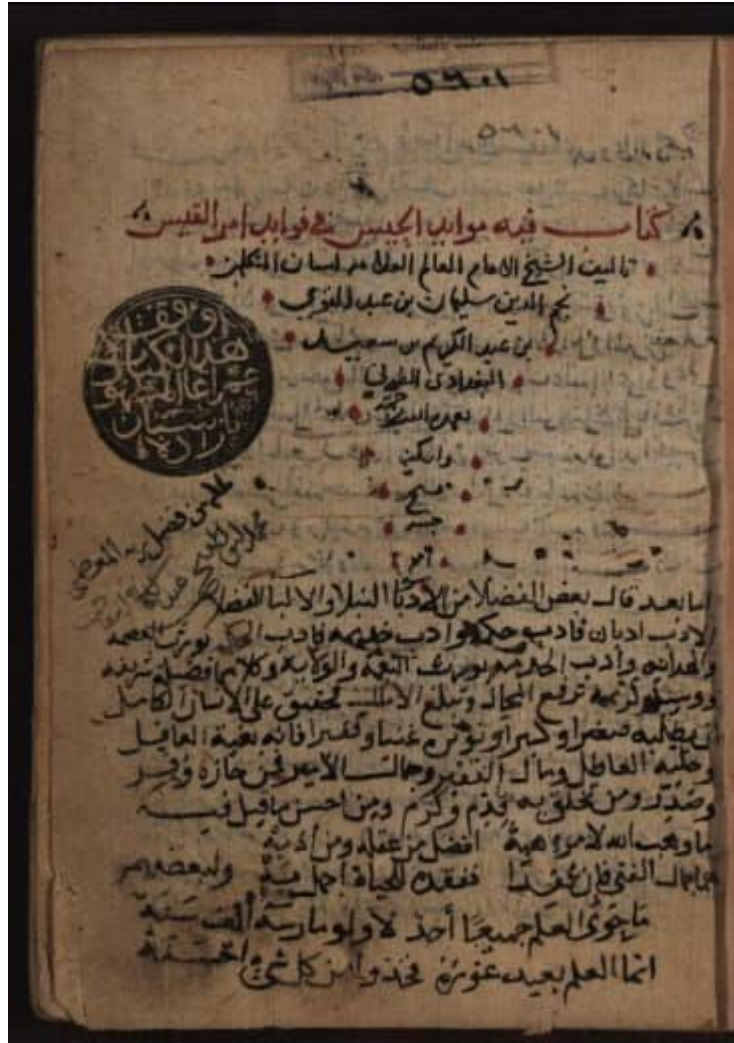 ٥٦٠١
كتاب فيه موايد الحيس في فوايد امرالقيس
تاليف الشيخ الامام العالم العلامه لسان المتكلمين
نجم الدين سليمان بن عبد القوي
بن عبد الكريم بن سعيد
البغدادى الطوفي
تغمده الله برحمته
واسكنه
فسيح
جنته
امين
اوقف
هذا الكتاب
اما بعد قال بعض الفضلا من الادبا النبلا والالبا الفضلا
الادب ادبان فادب حكمة وادب خدمه فادب يورث العصمه
والهدايه وأدب الخدمه يورث النعمه والولايه وكلاهما فضيله شريفه
ووسيله كريمه ترفع الحال وتبلغ الامال فحقيق على الانسان الكامل
ان يطلبه صغيرا وكبيرا ويؤثره غنيا وفقيرا فانه بغية العاقل
وحلية العاطل ومال الفقير وجمال الامير فمن حازه وقر
وصدر ومن تخلق به قدم وكرم ومن احسن ما قيل فيه
ما وهب الله لامرء هبة افضل من عقله ومن أدبه
هما جمال الفتى فان فقدا ففقده للحياة اجمل به ولبعضهم
ما حوى العلم جميعا أحد لا ولو مارسه ألف سنة
انما العلم بعيد غوره فخذوا من كل شيء احسنه